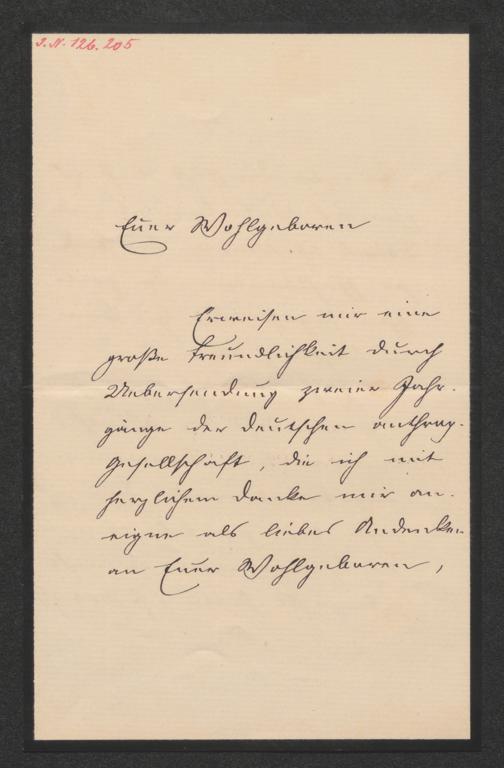 I.N. 126.205
Euer Wohlgeboren
Erweisen mir eine
große Freundlichkeit durch
Uebersendung zweier Jahr-
gänge der deutschen anthrop.
Gesellschaft, die ich mit
herzlichem Danke mir an-
eigne als liebes Andenken
an Euer Wohlgeboren,